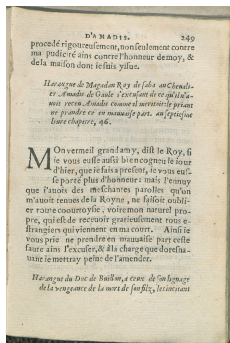 D'AMADIS. 249
procedé rigoureusement, non seulement contre
ma pudicité ains contre l'honneur de moy, &
de la maison dont je suis yssue.
Harangue de Magadan Roy de saba au Chevali-
er Amadis de Gaule s'excusant de ce qu'il n'a-
voit receu Amadis comme il meritoit: le priant
ne prendre ce en mauvaise part. au septiesme
livre chapitre, 46.
Mon vermeil grand amy, dist le Roy, si
je vous eusse aussi bien cogneu le jour
d'hier, que je fais a present, je vous eus-
se porté plus d'honneur: mais l'ennuy
que j'avois des meschantes parolles qu'on
m'avoit tenues de la Royne, ne faisoit oubli-
er toute courtoysie, voire mon naturel pro-
pre, qui est de recevoir gratieusement tous e-
strangiers qui viennent en ma court. Ainsi je
vous prie ne prendre en mauvaise part ceste
faute ains l'excuser, & à la charge que doresna-
vant je mettray peine de l'amender.
Harangue du Duc de Buillon, a ceux de son lignage
de la vengeance de la mort de son filz, les incitant